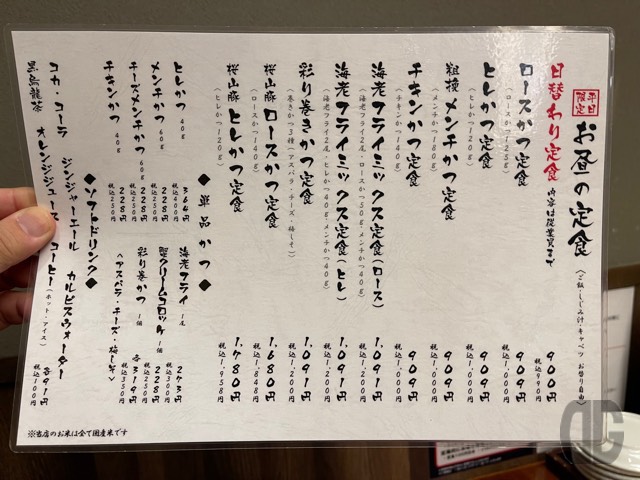 平日限定
お昼の定食
(ご飯・しじみ汁・キャベツ お替り自由)
日替わり定食 内容は従業員まで 900円
税込990円
ロースかつ定食 909円
(ロースかつ125g) 税込1,000円
ヒレかつ定食 909円
(ヒレかつ120g) 税込1,000円
粗挽メンチかつ定食 909円
(メンチかつ180g) 税込1,000円
チキンかつ定食 909円
(チキンかつ140g) 税込1,000円
海老フライミックス定食(ロース) 1,091円
(海老フライ2尾・ロースかつ50g・メンチかつ40g) 税込1,200円
海老フライミックス定食(ヒレ) 1,091円
(海老フライ2尾・ヒレかつ40g・メンチかつ40g) 税込1,200円
彩り巻きかつ定食 1,091円
(巻きかつ3種(アスパラ・チーズ・梅しそ)) 税込1,200円
桜山豚 ロースかつ定食 1,680円
(ロースかつ140g) 税込1,848円
桜山豚 ヒレかつ定食 1,780円
(ヒレかつ120g) 税込1,958円
◆単品かつ◆
ヒレかつ 40g 364円
税込400円
メンチかつ 60g 228円
税込250円
チーズメンチかつ 60g 228円
税込250円
チキンかつ 40g 228円
税込250円
海老フライ 1尾 273円
税込300円
蟹クリームコロッケ 1個 228円
税込250円
彩り巻かつ 1個 各319円
(アスパラ・チーズ・梅しそ) 税込350円
◆ソフトドリンク◆
コカ・コーラ ジンジャーエール カルピスウォーター
黒烏龍茶 オレンジジュース コーヒー(ホット・アイス) 各91円
税込100円
※当店のお米は全て国産米です